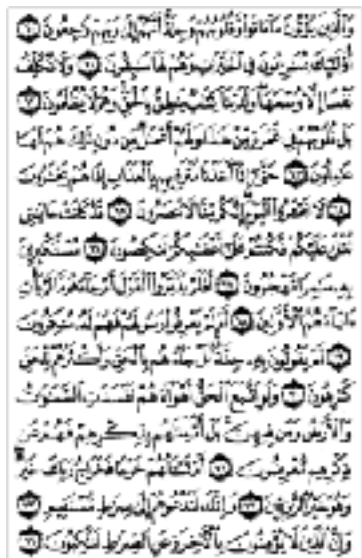 وَالَّذِينَ يُؤْتُونَ مَا آتَوا وَّقُلُوبُهُمْ وَجِلَةٌ أَنَّهُمْ إِلَىٰ رَبِّهِمْ رَاجِعُونَ ٦٠
أُولَٰئِكَ يُسَارِعُونَ فِي الْخَيْرَاتِ وَهُمْ لَهَا سَابِقُونَ ٦١ وَلَا نُكَلِّفُ
نَفْسًا إِلَّا وُسْعَهَا وَلَدَيْنَا كِتَابٌ يَنطِقُ بِالْحَقِّ وَهُمْ لَا يُظْلَمُونَ ٦٢
بَلْ قُلُوبُهُمْ فِي غَمْرَةٍ مِّنْ هَٰذَا وَلَهُمْ أَعْمَالٌ مِّن دُونِ ذَٰلِكَ هُمْ لَهَا
عَامِلُونَ ٦٣ حَتَّىٰ إِذَا أَخَذْنَا مُتْرَفِيهِم بِالْعَذَابِ إِذَا هُمْ يَجْأَرُونَ
٦٤ لَا تَجْأَرُوا الْيَوْمَ إِنَّكُم مِّنَّا لَا تُنصَرُونَ ٦٥ قَدْ كَانَتْ آيَاتِي
تُتْلَىٰ عَلَيْكُمْ فَكُنتُمْ عَلَىٰ أَعْقَابِكُمْ تَنكِصُونَ ٦٦ مُسْتَكْبِرِينَ
بِهِ سَامِرًا تَهْجُرُونَ ٦٧ أَفَلَمْ يَدَّبَّرُوا الْقَوْلَ أَمْ جَاءَهُم مَّا لَمْ يَأْتِ
آبَاءَهُمُ الْأَوَّلِينَ ٦٨ أَمْ لَمْ يَعْرِفُوا رَسُولَهُمْ فَهُمْ لَهُ مُنكِرُونَ
٦٩ أَمْ يَقُولُونَ بِهِ جِنَّةٌ بَلْ جَاءَهُم بِالْحَقِّ وَأَكْثَرُهُمْ لِلْحَقِّ
كَارِهُونَ ٧٠ وَلَوِ اتَّبَعَ الْحَقُّ أَهْوَاءَهُمْ لَفَسَدَتِ السَّمَاوَاتُ
وَالْأَرْضُ وَمَن فِيهِنَّ بَلْ أَتَيْنَاهُم بِذِكْرِهِمْ فَهُمْ عَن
ذِكْرِهِم مُّعْرِضُونَ ٧١ أَمْ تَسْأَلُهُمْ خَرْجًا فَخَرَاجُ رَبِّكَ خَيْرٌ
وَهُوَ خَيْرُ الرَّازِقِينَ ٧٢ وَإِنَّكَ لَتَدْعُوهُمْ إِلَىٰ صِرَاطٍ مُّسْتَقِيمٍ ٧٣
وَإِنَّ الَّذِينَ لَا يُؤْمِنُونَ بِالْآخِرَةِ عَنِ الصِّرَاطِ لَنَاكِبُونَ ٧٤